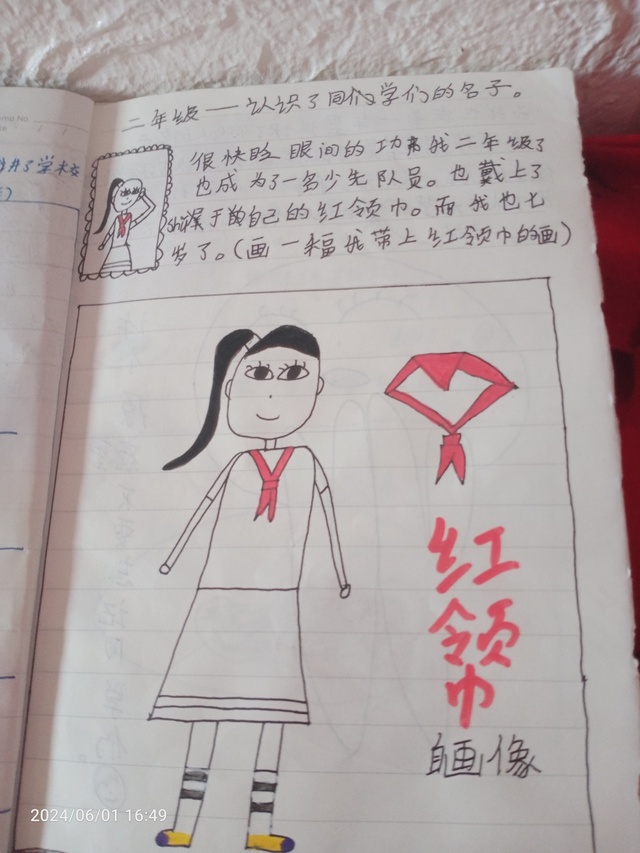 二年级——认识了同们学们的名子。
很快眨眼间的功夫我二年级了
也成为了一名少先队员。也戴上了
shǔ属于自己的红领巾。而我也七
岁了。(画一幅我带上红领巾的画)
红
领
巾
自画像
2024/06/01 16:49